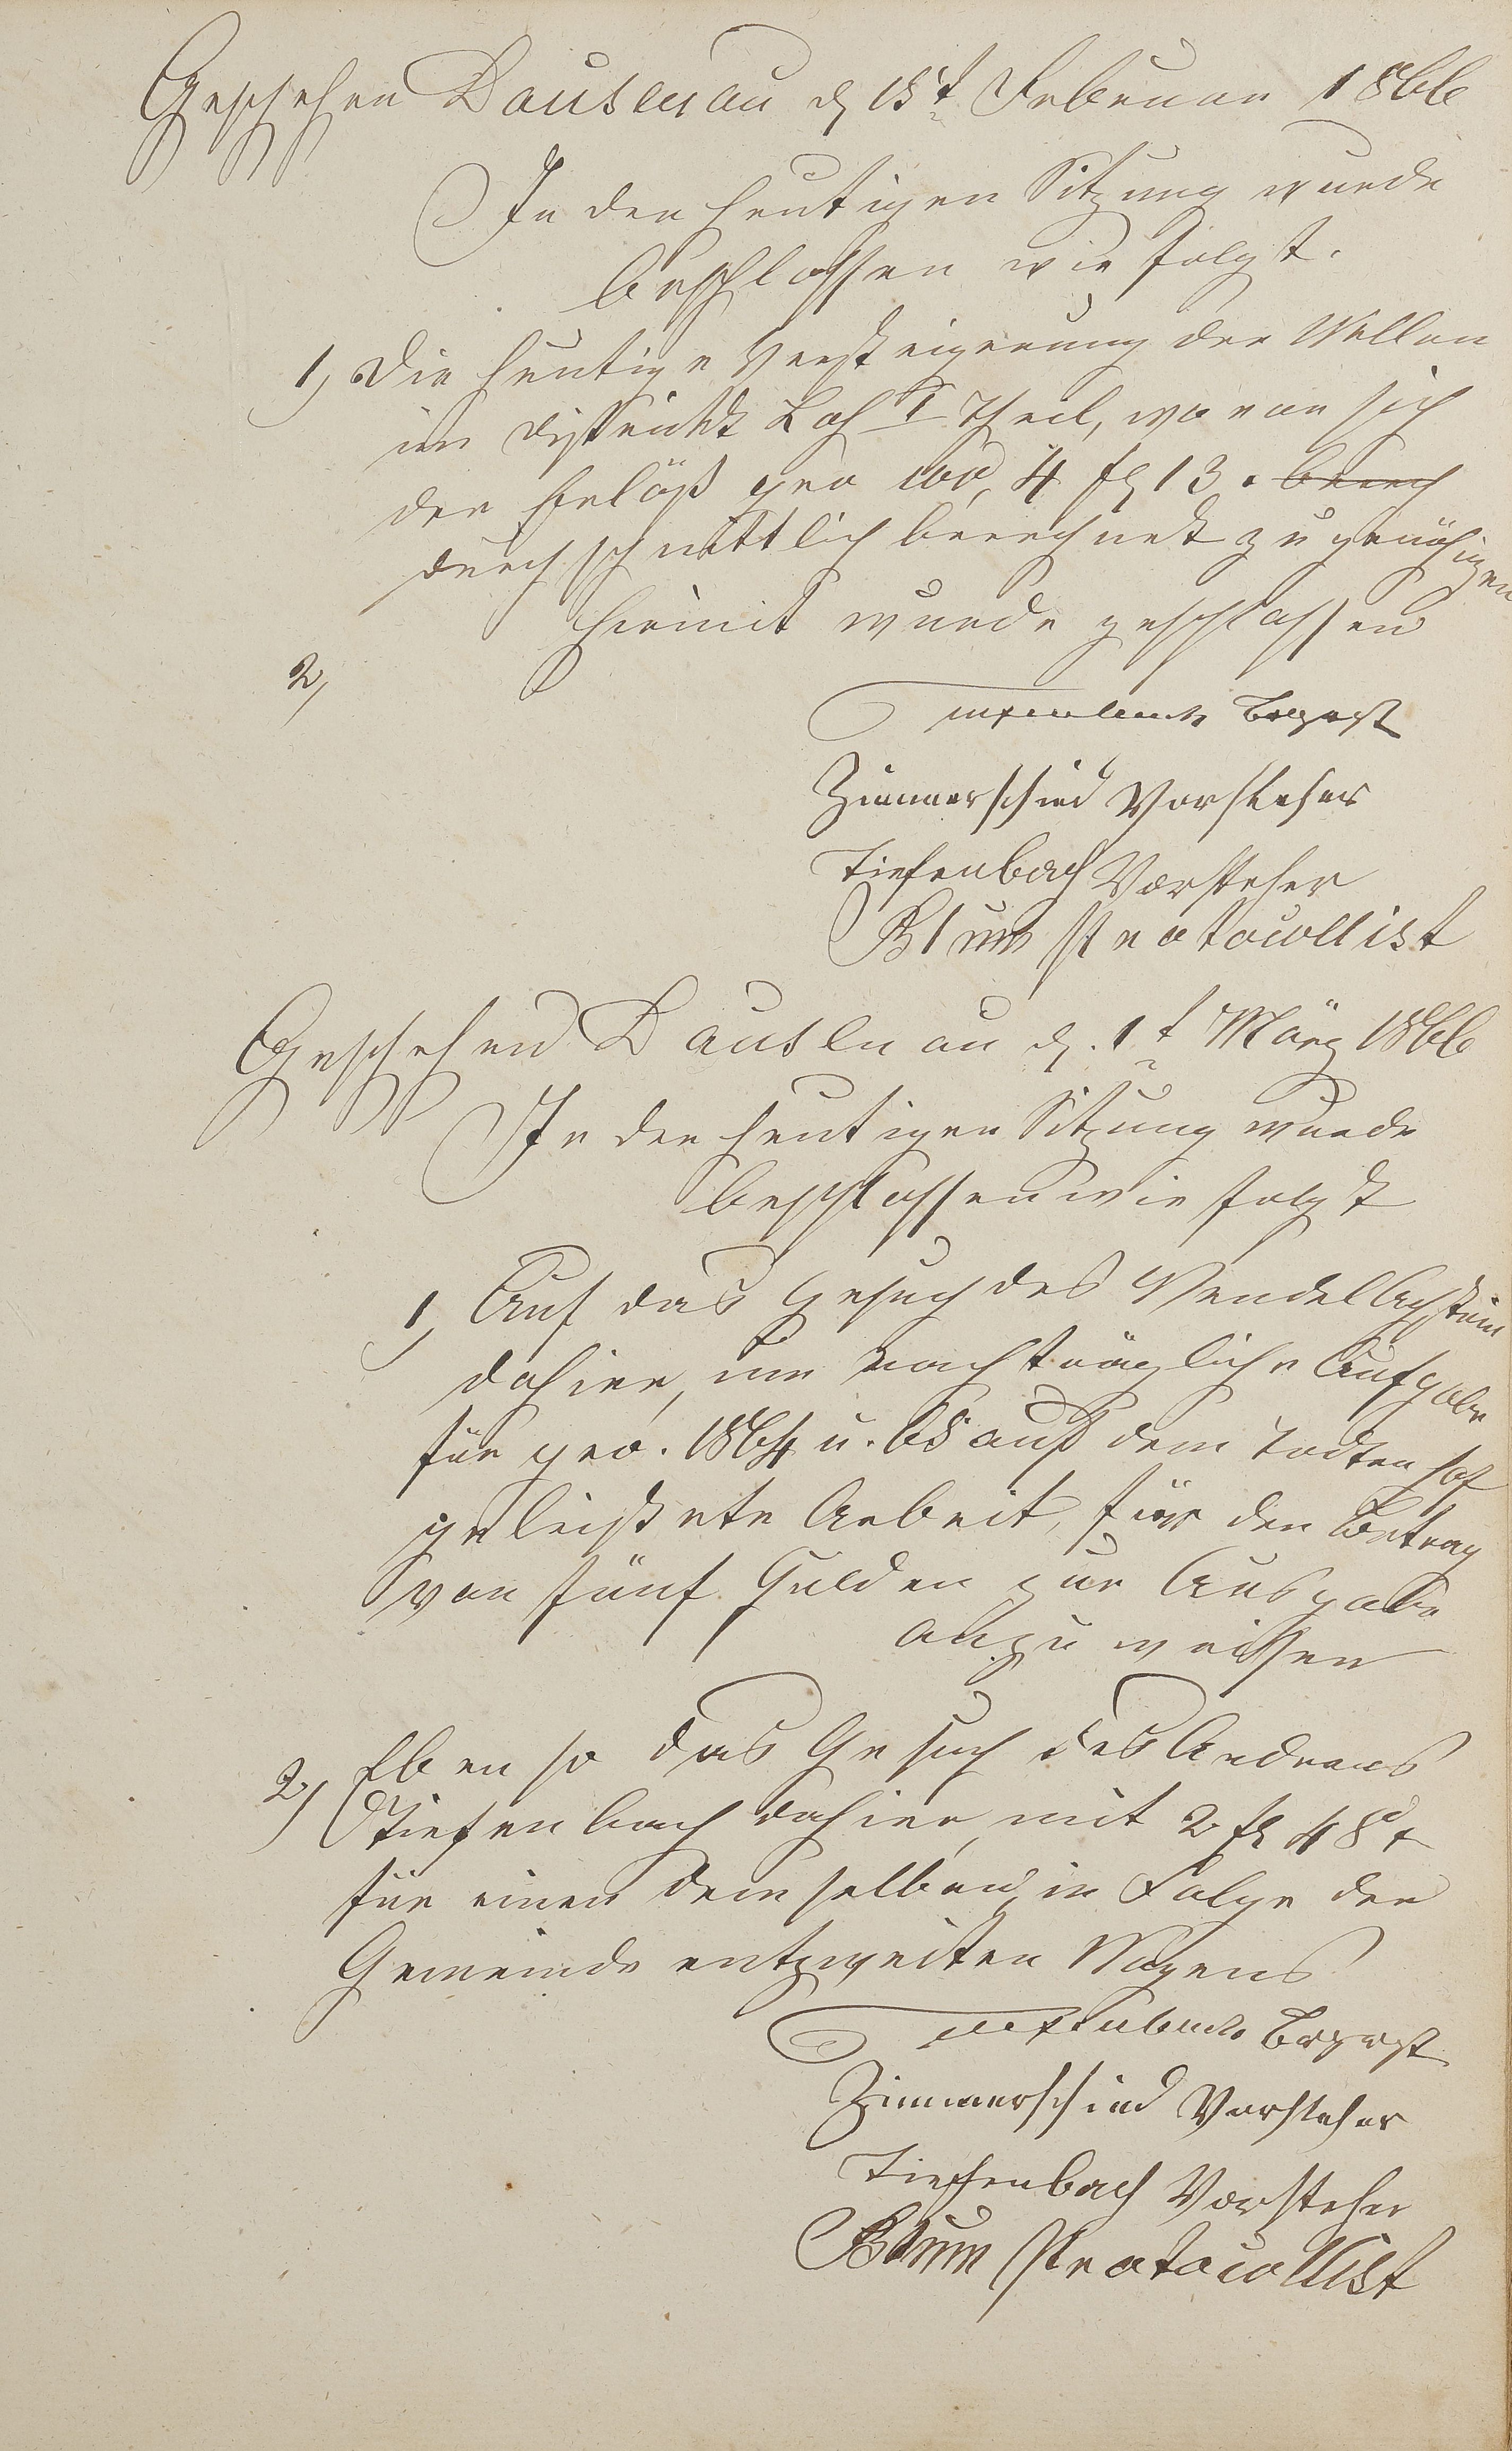 Geschehen Dausenau d 18t Februar 1866
In der heutigen Sitzung wurde
beschlossen wie folgt.
1, Die heutige Versteigerung der Wellen
im Distrikt Loh I Theil, wovon sich
der Erlöß pro 100, 4 fl 13 . berech
durchschnittlich berechnet zu genähigen
hiermit wurde geschlossen
2,
Zimmerschied Vorsteher
Tiefenbach Vorsteher
Blum Protocollist
Geschehen Dausenau d. 1t März 1866
In der heutigen Sitzung wurde
beschlossen wie folgt
1, Auf das Gesuch des Wendel
dahier, um nachträgliche Aufgabe
für pro. 1864 u. 65 auf dem Todtenhof
geleistete Arbeit, für den Betrag
von fünf Gulden zur Ausgabe
anzuweissen
2, Eben so das Gesuch des Andreas
Tiefenbach dahier, mit 2 fl 48 x
für einen demselben, in Folge der
Gemeinde entzweiten Wagens
Zimmerschied Vorsteher
Tiefenbach Vorsteher
Blum Protocollist